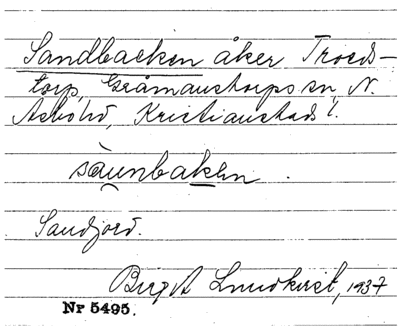 Sandbacken åker Troeds-
torp, Gråmanstorps sn, N.
Åsbo hd, Kristianstads l.
sàunbakən.
Sandjord.
Birgit Lundkvist, 1937
Nr 5495.